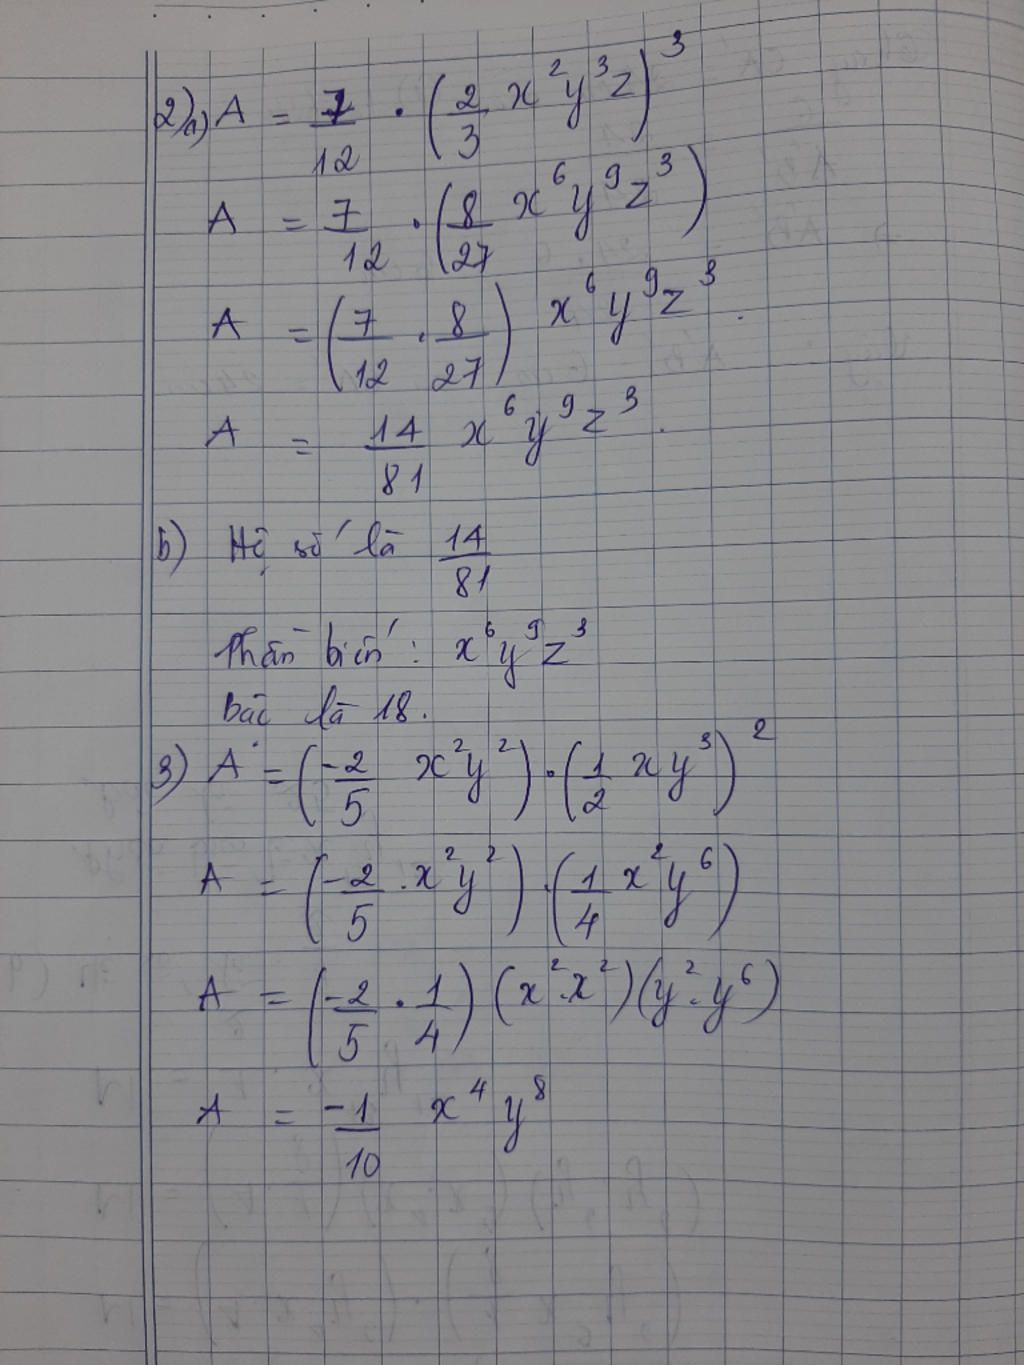 2) a) A = 7/12 . (2/3 x²y³z)³
A = 7/12 . (8/27 x⁶y⁹z³)
A = (7/12 . 8/27) x⁶y⁹z³.
A = 14/81 x⁶y⁹z³.
b) Hệ số là 14/81
Phần biến : x⁶y⁹z³
Bậc là 18.
3) A = (-2/5 x²y²) . (1/2 xy³)²
A = (-2/5 . x²y²) . (1/4 x²y⁶)
A = (-2/5 . 1/4) (x².x²)(y².y⁶)
A = -1/10 x⁴ y⁸